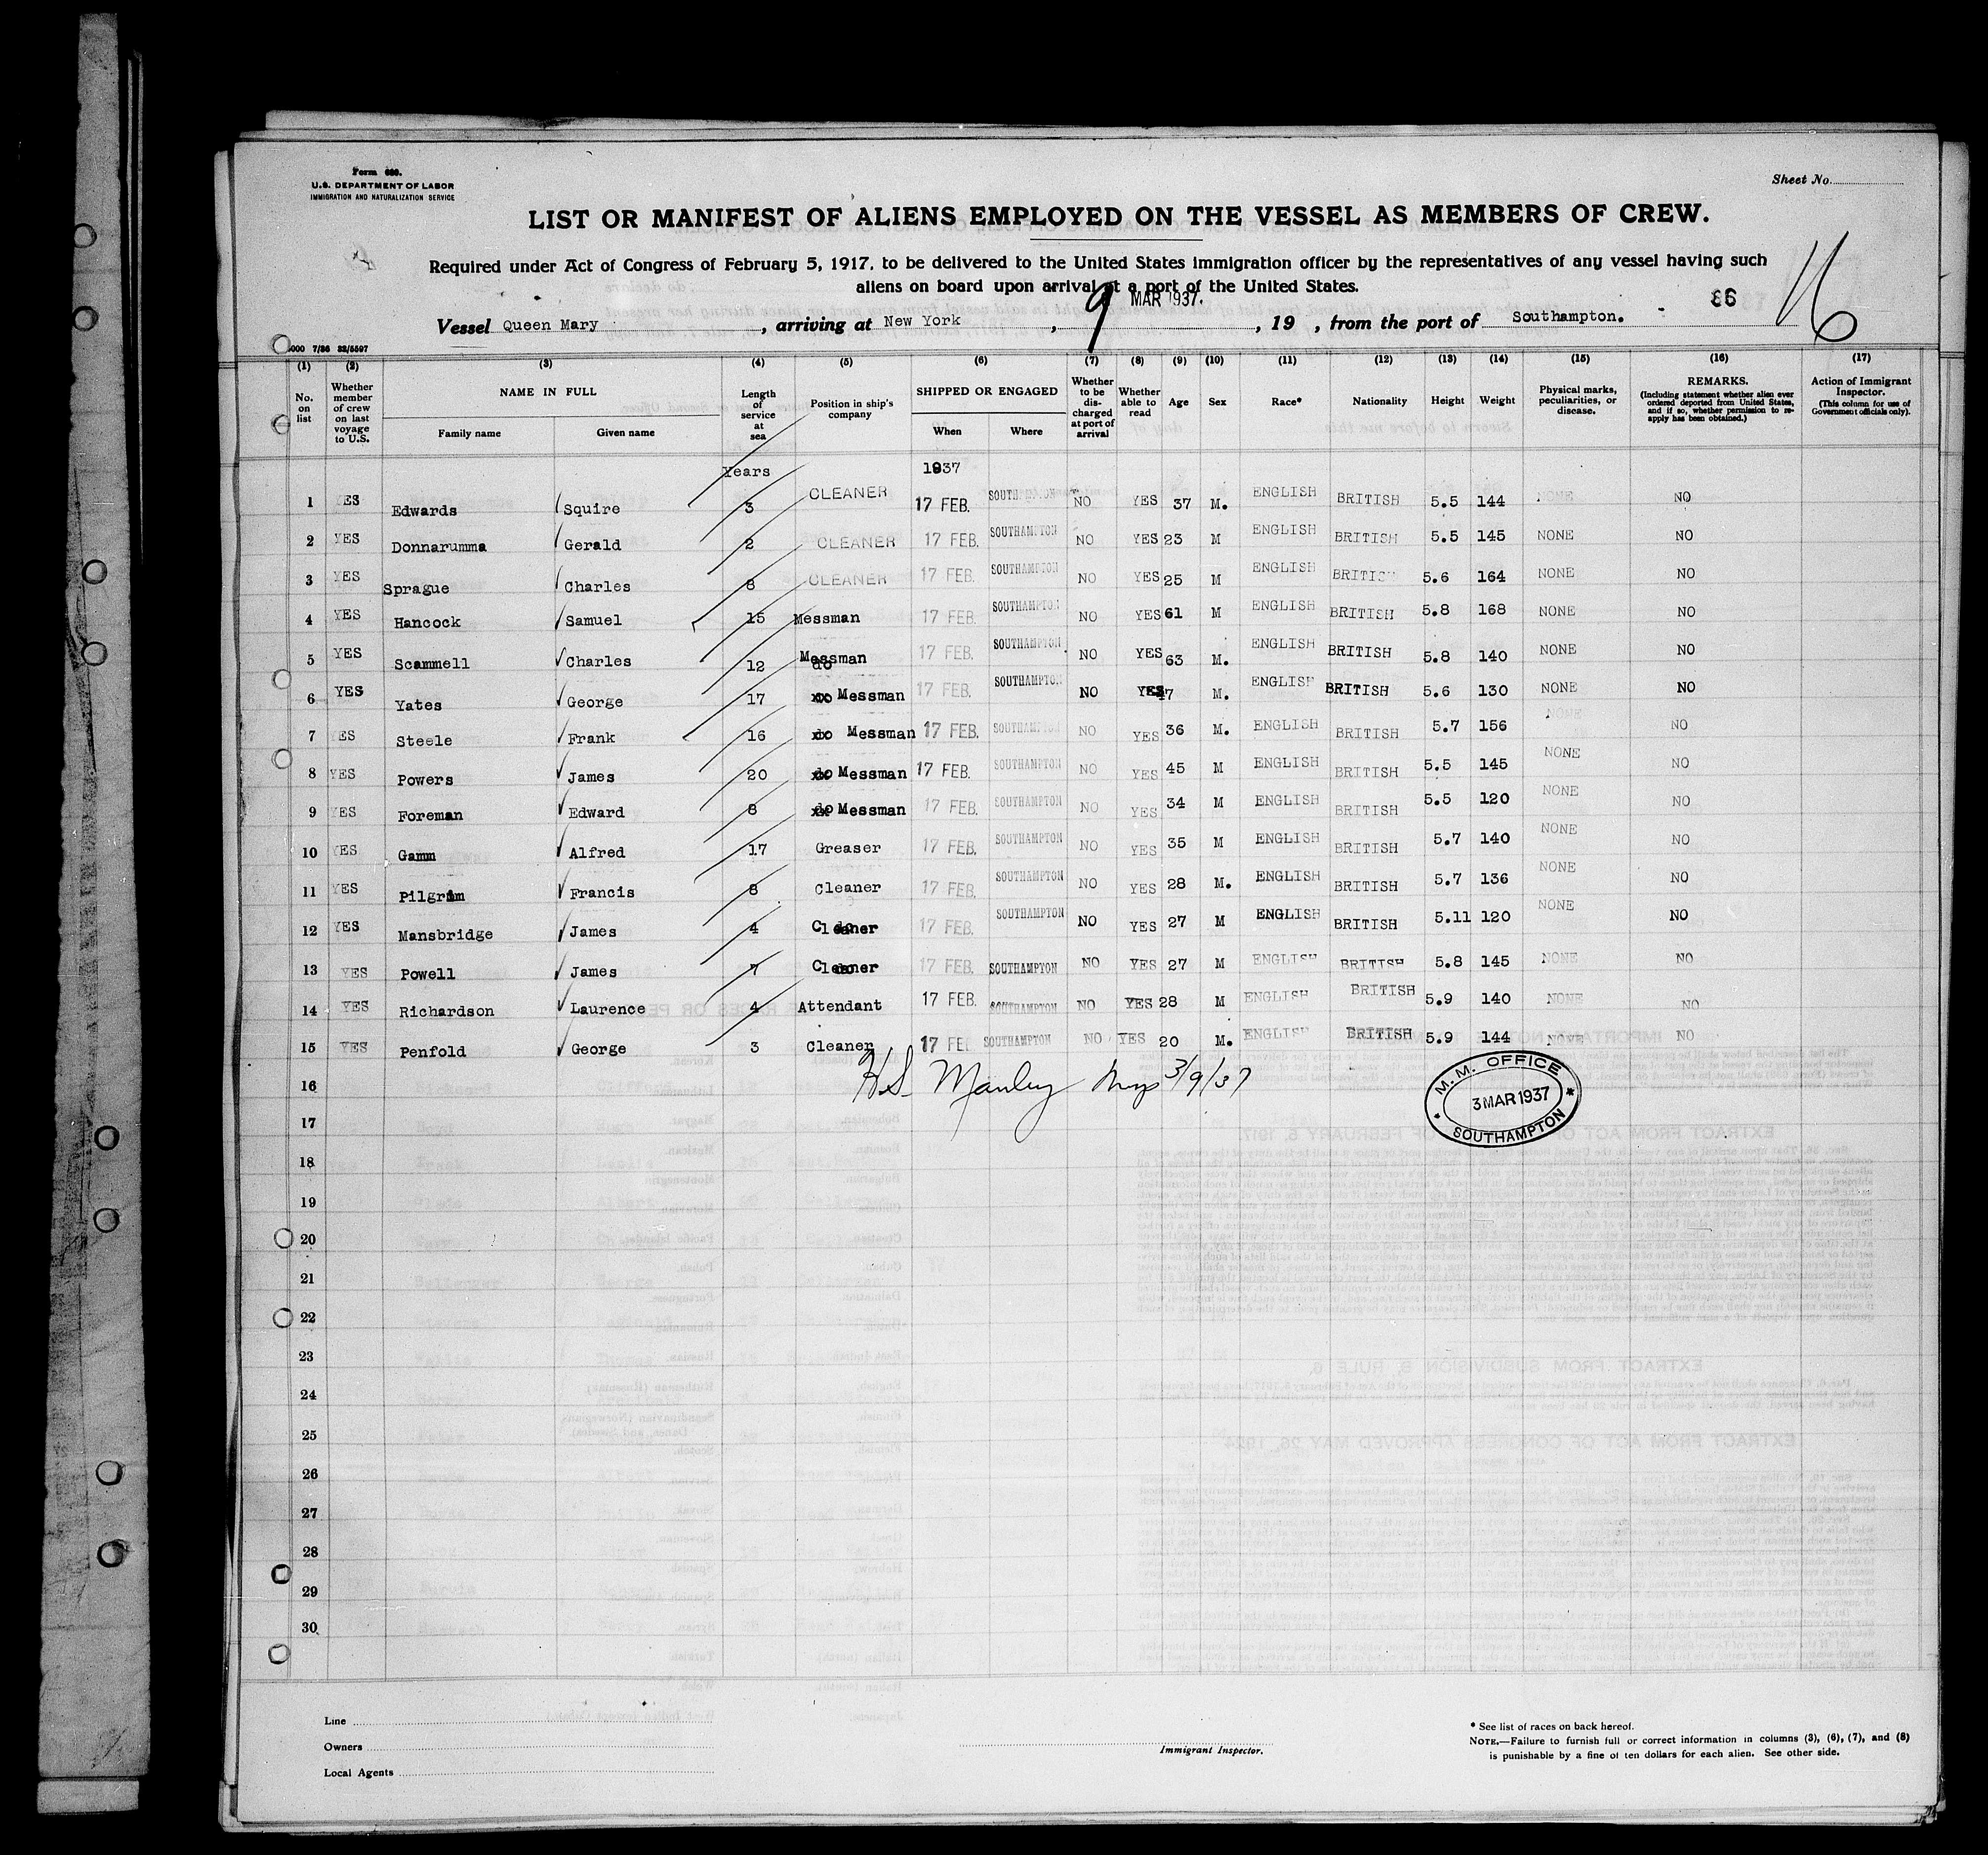 Form 680.
U.S. DEPARTMENT OF LABOR
IMMIGRATION AND NATURALIZATION SERVICE
Sheet No.
LIST OR MANIFEST OF ALIENS EMPLOYED ON THE VESSEL AS MEMBERS OF CREW.
Required under Act of Congress of February 5, 1917, to be delivered to the United States immigration officer by the representatives of any vessel having such
aliens on board upon arrival at a port of the United States.
86
16
Vessel Queen Mary, arriving at New York, 9 MAR 1937., 19 , from the port of Southampton.
(1) (2) (3) (4) (5) (6) (7) (8) (9) (10) (11) (12) (13) (14) (15) (16) (17)
No. on list
Whether member of crew on last voyage to U.S.
NAME IN FULL
Family name
Given name
Length of service at sea
Position in ship's company
SHIPPED OR ENGAGED
When
Where
Whether to be discharged at port of arrival
Whether able to read
Age
Sex
Race*
Nationality
Height
Weight
Physical marks, peculiarities, or disease.
REMARKS.
(Including statement whether alien ever ordered deported from United States, and if so, whether permission to reapply has been obtained.)
Action of Immigrant Inspector.
(This column for use of Government officials only).
Years 1937
1 YES Edwards Squire 3 CLEANER 17 FEB. SOUTHAMPTON NO YES 37 M. ENGLISH BRITISH 5.5 144 NONE NO
2 YES Donnarumma Gerald 2 CLEANER 17 FEB. SOUTHAMPTON NO YES 23 M ENGLISH BRITISH 5.5 145 NONE NO
3 YES Sprague Charles 8 CLEANER 17 FEB. SOUTHAMPTON NO YES 25 M ENGLISH BRITISH 5.6 164 NONE NO
4 YES Hancock Samuel 15 Messman 17 FEB. SOUTHAMPTON NO YES 61 M ENGLISH BRITISH 5.8 168 NONE NO
5 YES Scammell Charles 12 Messman 17 FEB. SOUTHAMPTON NO YES 63 M. ENGLISH BRITISH 5.8 140 NONE NO
6 YES Yates George 17 Messman 17 FEB. SOUTHAMPTON NO YES 47 M. ENGLISH BRITISH 5.6 130 NONE NO
7 YES Steele Frank 16 Messman 17 FEB. SOUTHAMPTON NO YES 36 M. ENGLISH BRITISH 5.7 156 NONE NO
8 YES Powers James 20 Messman 17 FEB. SOUTHAMPTON NO YES 45 M ENGLISH BRITISH 5.5 145 NONE NO
9 YES Foreman Edward 8 Messman 17 FEB. SOUTHAMPTON NO YES 34 M ENGLISH BRITISH 5.5 120 NONE NO
10 YES Gamm Alfred 17 Greaser 17 FEB. SOUTHAMPTON NO YES 35 M ENGLISH BRITISH 5.7 140 NONE NO
11 YES Pilgrim Francis 8 Cleaner 17 FEB. SOUTHAMPTON NO YES 28 M. ENGLISH BRITISH 5.7 136 NONE NO
12 YES Mansbridge James 4 Cleaner 17 FEB. SOUTHAMPTON NO YES 27 M ENGLISH BRITISH 5.11 120 NONE NO
13 YES Powell James 7 Cleaner 17 FEB. SOUTHAMPTON NO YES 27 M ENGLISH BRITISH 5.8 145 NONE NO
14 YES Richardson Laurence 4 Attendant 17 FEB. SOUTHAMPTON NO YES 28 M ENGLISH BRITISH 5.9 140 NONE NO
15 YES Penfold George 3 Cleaner 17 FEB SOUTHAMPTON NO YES 20 M. ENGLISH BRITISH 5.9 144 NONE NO
H.S. Manley Insp 3/9/37
M.M. OFFICE
3 MAR 1937
SOUTHAMPTON
16
17
18
19
20
21
22
23
24
25
26
27
28
29
30
Line
Owners
Local Agents
Immigrant Inspector.
* See list of races on back hereof.
NOTE.—Failure to furnish full or correct information in columns (3), (6), (7), and (8)
is punishable by a fine of ten dollars for each alien. See other side.